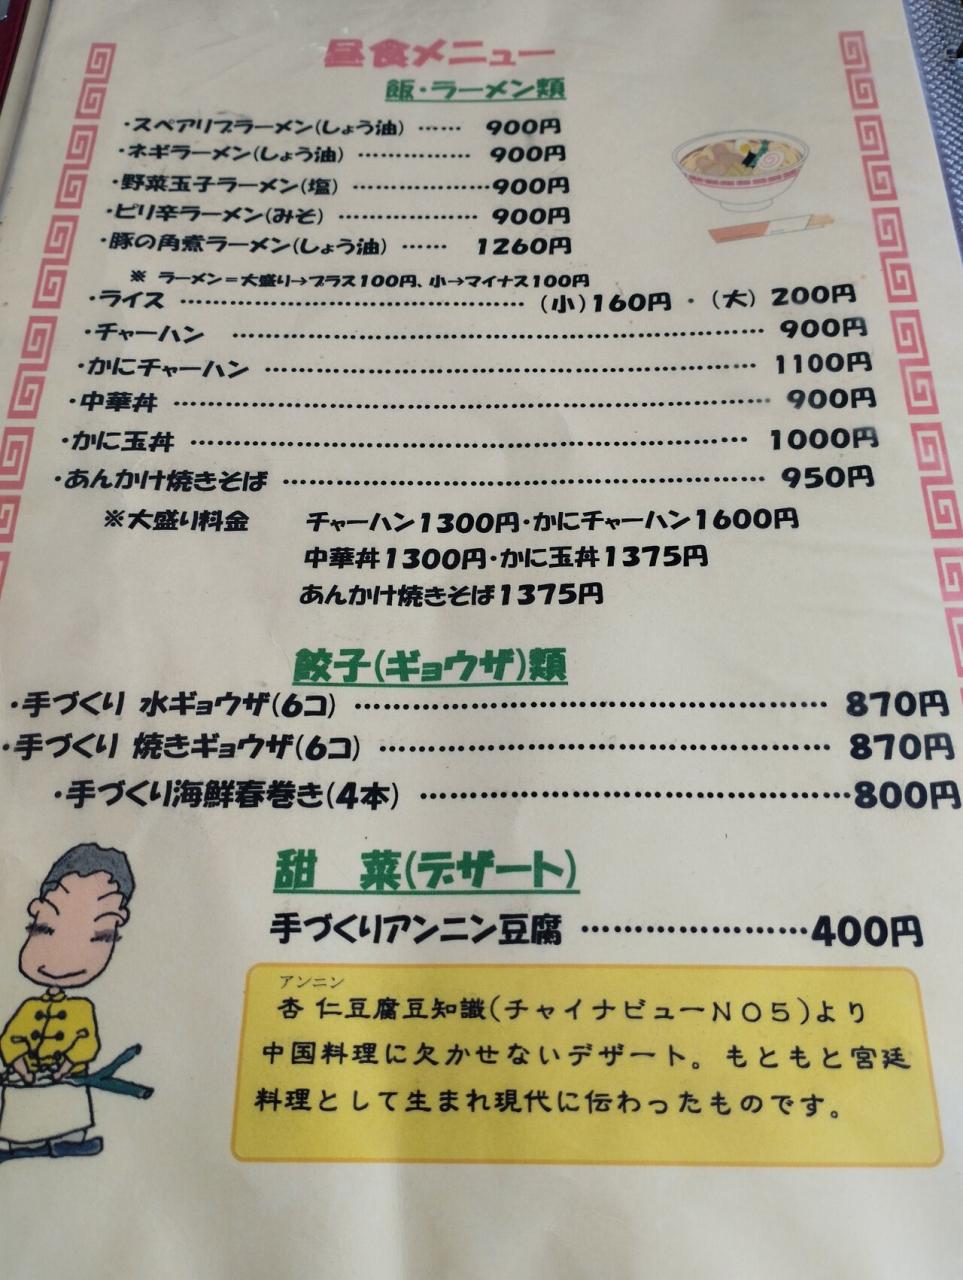 昼食メニュー
飯・ラーメン類
・スペアリブラーメン(しょう油) …… 900円
・ネギラーメン(しょう油) …………… 900円
・野菜玉子ラーメン(塩) ………………900円
・ピリ辛ラーメン(みそ) ……………… 900円
・豚の角煮ラーメン(しょう油) …… 1260円
※ ラーメン=大盛り→プラス100円、小→マイナス100円
・ライス ………………………………… (小)160円 ・ (大) 200円
・チャーハン ………………………………………………… 900円
・かにチャーハン ……………………………………………… 1100円
・中華丼 ………………………………………………………… 900円
・かに玉丼 ……………………………………………………… 1000円
・あんかけ焼きそば …………………………………………… 950円
※大盛り料金 チャーハン1300円・かにチャーハン1600円
中華丼1300円・かに玉丼1375円
あんかけ焼きそば1375円
餃子(ギョウザ)類
・手づくり 水ギョウザ(6コ) ……………………………………… 870円
・手づくり 焼きギョウザ(6コ) …………………………………… 870円
・手づくり海鮮春巻き(4本) ……………………………………800円
甜 菜(デザート)
手づくりアンニン豆腐 ……………………400円
アンニン
杏仁豆腐豆知識(チャイナビューNO5)より
中国料理に欠かせないデザート。もともと宮廷
料理として生まれ現代に伝わったものです。